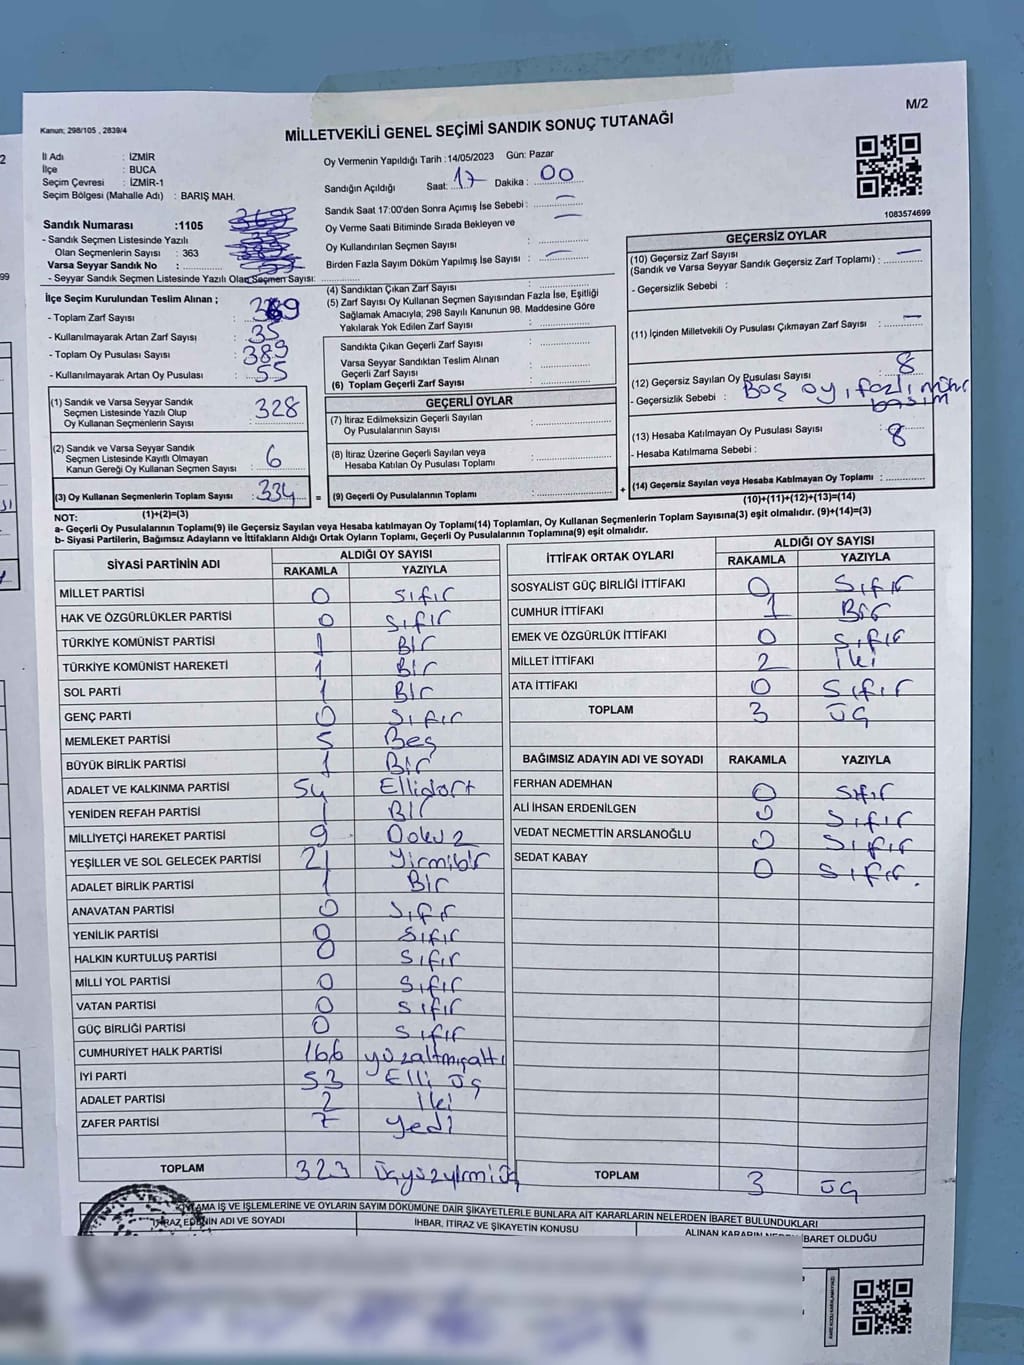 M/2
Kanun; 298/105 , 2839/4
MİLLETVEKİLİ GENEL SEÇİMİ SANDIK SONUÇ TUTANAĞI
İl Adı : İZMİR
İlçe : BUCA
Seçim Çevresi : İZMİR-1
Seçim Bölgesi (Mahalle Adı) : BARIŞ MAH.
Sandık Numarası :1105
- Sandık Seçmen Listesinde Yazılı
Olan Seçmenlerin Sayısı : 363
Varsa Seyyar Sandık No :
- Seyyar Sandık Seçmen Listesinde Yazılı Olan Seçmen Sayısı:
Oy Vermenin Yapıldığı Tarih :14/05/2023 Gün: Pazar
Sandığın Açıldığı Saat: 17 Dakika : 00
Sandık Saat 17:00'den Sonra Açımış İse Sebebi : —
Oy Verme Saati Bitiminde Sırada Bekleyen ve —
Oy Kullandırılan Seçmen Sayısı :
Birden Fazla Sayım Döküm Yapılmış İse Sayısı : —
1083574699
İlçe Seçim Kurulundan Teslim Alınan ;
- Toplam Zarf Sayısı :
- Kullanılmayarak Artan Zarf Sayısı : 35
- Toplam Oy Pusulası Sayısı : 389
- Kullanılmayarak Artan Oy Pusulası : 55
(1) Sandık ve Varsa Seyyar Sandık
Seçmen Listesinde Yazılı Olup
Oy Kullanan Seçmenlerin Sayısı : 328
(2) Sandık ve Varsa Seyyar Sandık
Seçmen Listesinde Kayıtlı Olmayan
Kanun Gereği Oy Kullanan Seçmen Sayısı : 6
(3) Oy Kullanan Seçmenlerin Toplam Sayısı : 334
(1)+(2)=(3)
(4) Sandıktan Çıkan Zarf Sayısı :
(5) Zarf Sayısı Oy Kullanan Seçmen Sayısından Fazla İse, Eşitliği
Sağlamak Amacıyla; 298 Sayılı Kanunun 98. Maddesine Göre
Yakılarak Yok Edilen Zarf Sayısı :
Sandıkta Çıkan Geçerli Zarf Sayısı :
Varsa Seyyar Sandıktan Teslim Alınan
Geçerli Zarf Sayısı :
(6) Toplam Geçerli Zarf Sayısı :
GEÇERLİ OYLAR
(7) İtiraz Edilmeksizin Geçerli Sayılan
Oy Pusulalarının Sayısı :
(8) İtiraz Üzerine Geçerli Sayılan veya
Hesaba Katılan Oy Pusulası Toplamı :
= (9) Geçerli Oy Pusulalarının Toplamı :
GEÇERSİZ OYLAR
(10) Geçersiz Zarf Sayısı
(Sandık ve Varsa Seyyar Sandık Geçersiz Zarf Toplamı) : —
- Geçersizlik Sebebi :
(11) İçinden Milletvekili Oy Pusulası Çıkmayan Zarf Sayısı : —
(12) Geçersiz Sayılan Oy Pusulası Sayısı : 8
- Geçersizlik Sebebi : Boş oy, fazla mühür
basım
(13) Hesaba Katılmayan Oy Pusulası Sayısı : 8
- Hesaba Katılmama Sebebi :
+ (14) Geçersiz Sayılan veya Hesaba Katılmayan Oy Toplamı :
(10)+(11)+(12)+(13)=(14)
NOT:
a- Geçerli Oy Pusulalarının Toplamı(9) ile Geçersiz Sayılan veya Hesaba katılmayan Oy Toplamı(14) Toplamları, Oy Kullanan Seçmenlerin Toplam Sayısına(3) eşit olmalıdır. (9)+(14)=(3)
b- Siyasi Partilerin, Bağımsız Adayların ve İttifakların Aldığı Ortak Oyların Toplamı, Geçerli Oy Pusulalarının Toplamına(9) eşit olmalıdır.
SİYASİ PARTİNİN ADI ALDIĞI OY SAYISI
RAKAMLA YAZIYLA
MİLLET PARTİSİ 0 Sıfır
HAK VE ÖZGÜRLÜKLER PARTİSİ 0 Sıfır
TÜRKİYE KOMÜNİST PARTİSİ 1 Bir
TÜRKİYE KOMÜNİST HAREKETİ 1 Bir
SOL PARTİ 1 Bir
GENÇ PARTİ 0 Sıfır
MEMLEKET PARTİSİ 5 Beş
BÜYÜK BİRLİK PARTİSİ 1 Bir
ADALET VE KALKINMA PARTİSİ 54 Ellidört
YENİDEN REFAH PARTİSİ 1 Bir
MİLLİYETÇİ HAREKET PARTİSİ 9 Dokuz
YEŞİLLER VE SOL GELECEK PARTİSİ 21 Yirmibir
ADALET BİRLİK PARTİSİ 1 Bir
ANAVATAN PARTİSİ 0 Sıfır
YENİLİK PARTİSİ 0 Sıfır
HALKIN KURTULUŞ PARTİSİ 0 Sıfır
MİLLİ YOL PARTİSİ 0 Sıfır
VATAN PARTİSİ 0 Sıfır
GÜÇ BİRLİĞİ PARTİSİ 0 Sıfır
CUMHURİYET HALK PARTİSİ 166 yüzaltmışaltı
İYİ PARTİ 53 Elli üç
ADALET PARTİSİ 2 İki
ZAFER PARTİSİ 7 yedi
TOPLAM 323 Üçyüzyirmiüç
İTTİFAK ORTAK OYLARI ALDIĞI OY SAYISI
RAKAMLA YAZIYLA
SOSYALİST GÜÇ BİRLİĞİ İTTİFAKI 0 Sıfır
CUMHUR İTTİFAKI 1 Bir
EMEK VE ÖZGÜRLÜK İTTİFAKI 0 Sıfır
MİLLET İTTİFAKI 2 İki
ATA İTTİFAKI 0 Sıfır
TOPLAM 3 üç
BAĞIMSIZ ADAYIN ADI VE SOYADI RAKAMLA YAZIYLA
FERHAN ADEMHAN 0 Sıfır
ALİ İHSAN ERDENİLGEN 0 Sıfır
VEDAT NECMETTİN ARSLANOĞLU 0 Sıfır
SEDAT KABAY 0 Sıfır.
TOPLAM 3 üç
İŞ VE İŞLEMLERİNE VE OYLARIN SAYIM DÖKÜMÜNE DAİR ŞİKAYETLERLE BUNLARA AİT KARARLARIN NELERDEN İBARET BULUNDUKLARI
İTİRAZ EDENİN ADI VE SOYADI İHBAR, İTİRAZ VE ŞİKAYETİN KONUSU ALINAN KARARIN İBARET OLDUĞU